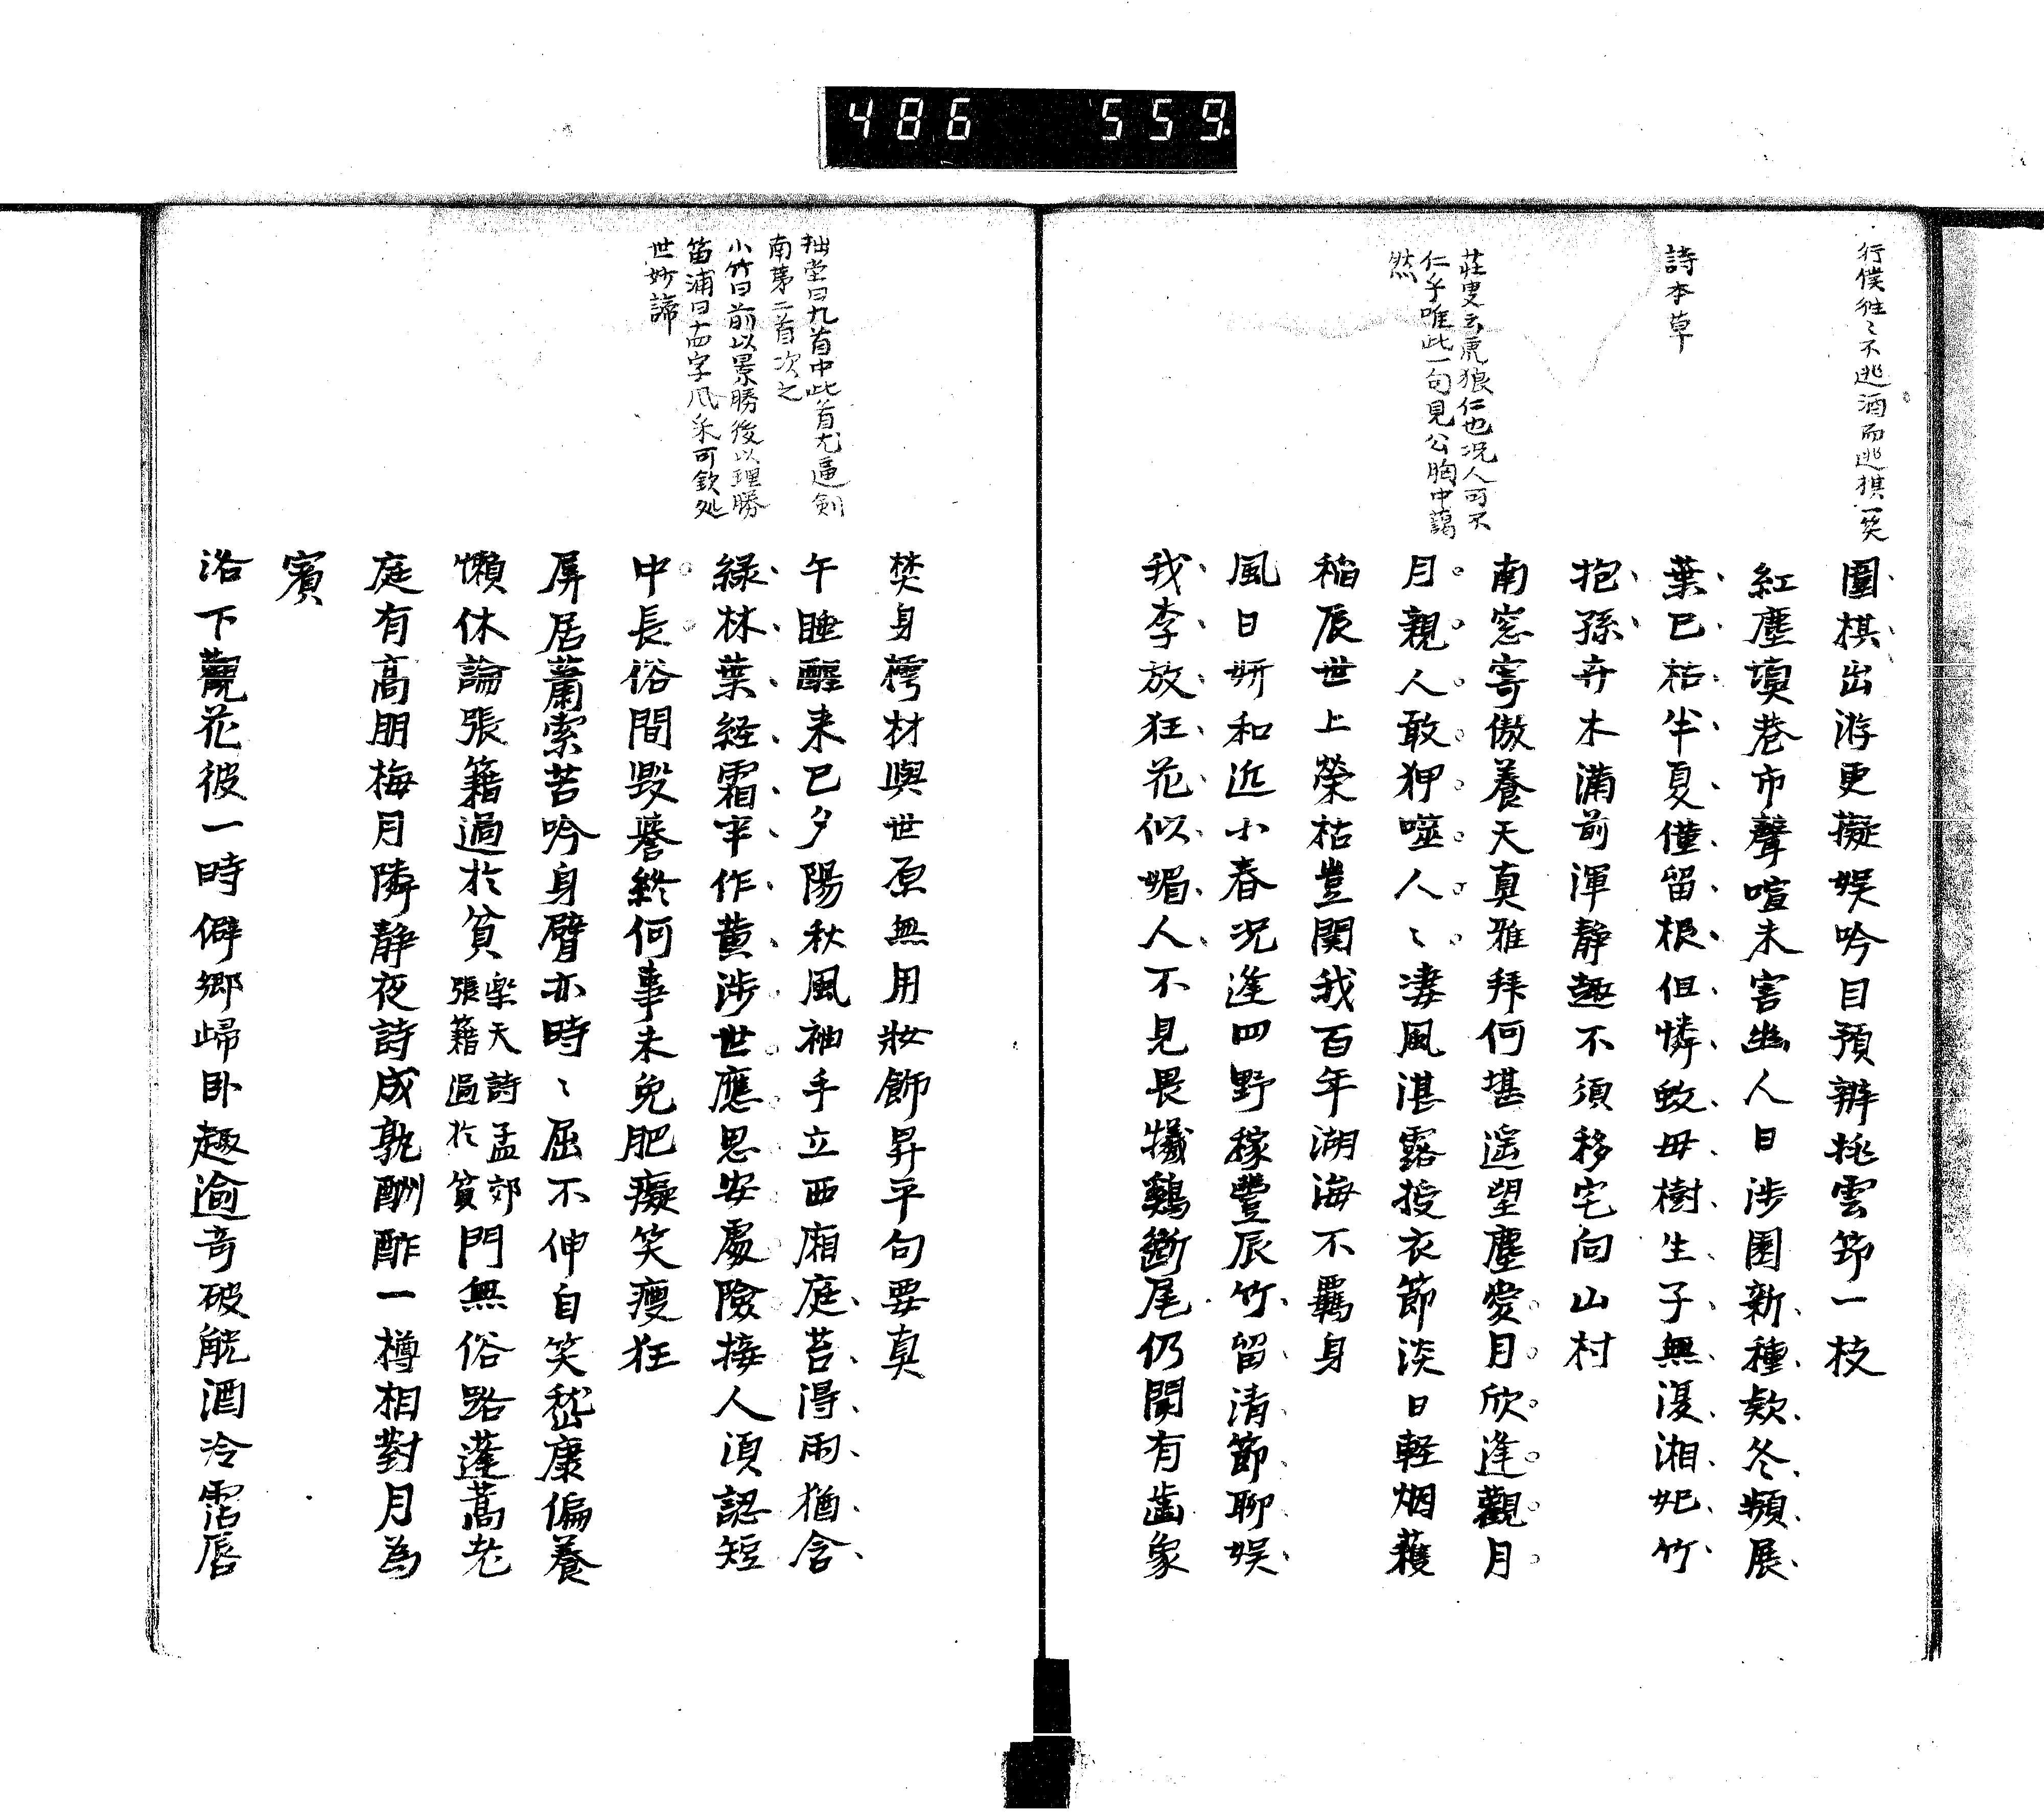 486 559
行僕往〻不逃酒而逃棋一笑
詩本草
莊叟云虎狼仁也况人可不
仁乎唯此一句見公胸中藹
然
圍棋出游更擬娯吟目預辦桃雲筇一枝
紅塵塡巷市聲喧未害幽人日涉園新種欵冬頻展
葉已枯半夏僅留根但憐蚊毋樹生子無復湘妃竹
抱孫卉木滿前渾静趣不須移宅向山村
南窓寄傲養天真雅拜何堪遙望塵愛月欣逢觀月
月親人敢狎噬人〻凄風湛露授衣節淡日軽烟穫
稲辰世上榮枯豈関我百年湖海不羈身
風日妍和近小春况逢四野稼豐辰竹留清節聊娯
我李放狂花似媚人不見畏犠鷄斷尾仍聞有齒象
拙堂曰九首中此首尤逼剣
南第二首次之
小竹曰前以景勝後以理勝
笛浦曰十四字風采可欽処
世妙諦
焚身樗材與世原無用妝飾昇平句要真
午睡醒来已夕陽秋風袖手立西廂庭苔得雨猶含
緑林葉経霜半作黄渉世應思安處險接人須認短
中長俗間毀譽終何事未免肥癡笑瘦狂
屏居蕭索苦吟身臂亦時〻屈不伸自笑嵆康偏養
懶休論張籍過於貧楽天詩孟郊張籍過於貧門無俗路蓬蒿老
庭有高朋梅月隣静夜詩成孰酬酢一樽相對月為
賓
洛下觀花彼一時僻郷歸臥趣逾奇破觥酒冷霑唇